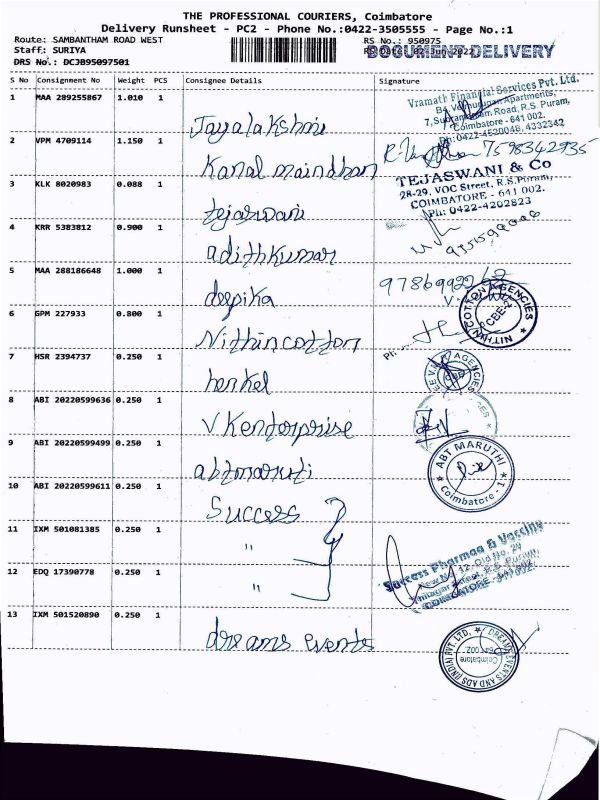 THE PROFESSIONAL COURIERS, Coimbatore
Delivery Runsheet - PC2 - Phone No.:0422-3505555 - Page No.:1
Route: SAMBANTHAM ROAD WEST
RS No.: 950975
Staff: SURIYA
02-Jun-2022
DOCUMENT DELIVERY
DRS No.: DCJB95097501
S No Consignment No Weight PCS Consignee Details Signature
1 MAA 289255867 1.010 1 Jayalakshmi
Vramath Financial Services Pvt. Ltd.
Apartments,
Road, R.S. Puram,
Coimbatore - 641 002.
Ph: 0422-4520048, 4332342
2 VPM 4709114 1.150 1 Kamal maindhan
7598342935
3 KLK 8020983 0.088 1 tejaswani
TEJASWANI & Co
28-29, VOC Street, R.S.Puram,
COIMBATORE - 641 002.
Ph: 0422-4202823
4 KRR 5383812 0.900 1 adithkumar
5 MAA 288186648 1.000 1 deepika
6 GPM 227933 0.800 1 Nithincotton
NITHIN COTTON AGENCIES
CBE-2
Ph:
7 HSR 2394737 0.250 1 henkel
AGENCIES
8 ABI 20220599636 0.250 1 V Kenterprise
9 ABI 20220599499 0.250 1 abtmaruti
ABT MARUTHI
Coimbatore - 1
10 ABI 20220599611 0.250 1 Success
11 IXM 501081385 0.250 1 "
Success Pharmaa & Vaccine
12 EDQ 17390778 0.250 1 "
13 IXM 501520890 0.250 1 dreams events
DREAMS EVENTS AND ADS (INDIA) PVT. LTD.
Coimbatore
641 002